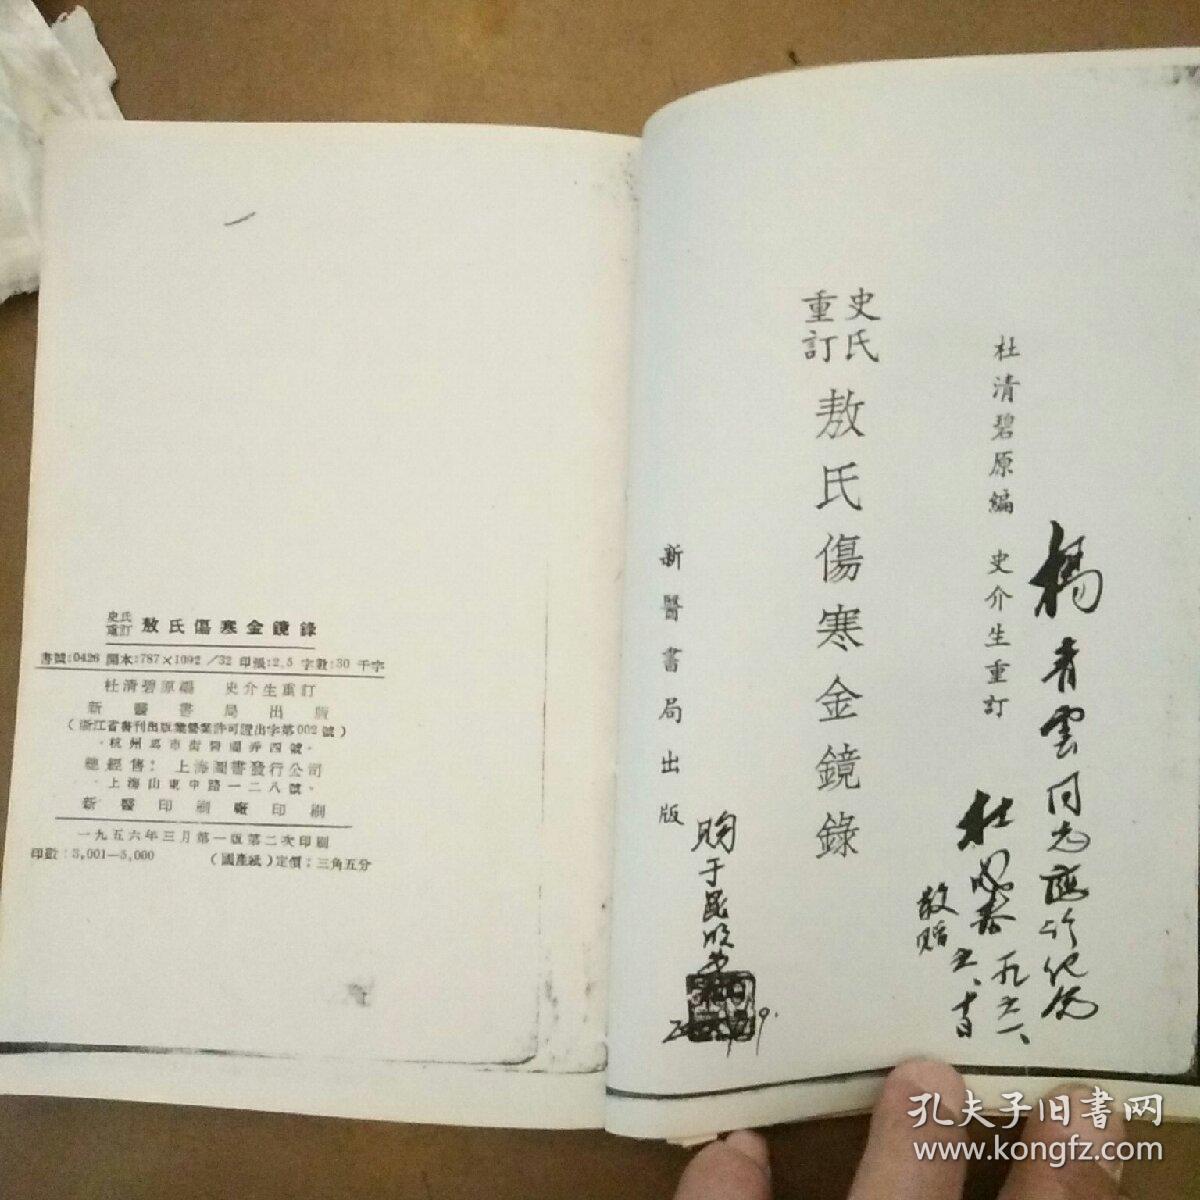 史氏重訂 敖氏傷寒金鏡錄
書號:0426 開本:787×1092 /32 印張:2.5 字數:30 千字
杜清碧原編 史介生重訂
新醫書局出版
(浙江省書刊出版業營業許可證出字第002號)
總經售: 上海圖書發行公司
上海山東中路一二八號
新醫印刷廠印刷
一九五六年三月第一版第二次印刷
印數:3,001—5,000 (國產紙)定價:三角五分
杜清碧原編 史介生重訂
史氏重訂 敖氏傷寒金鏡錄
新醫書局出版
楊青雲同志
敬贈
孔夫子旧书网
www.kongfz.com